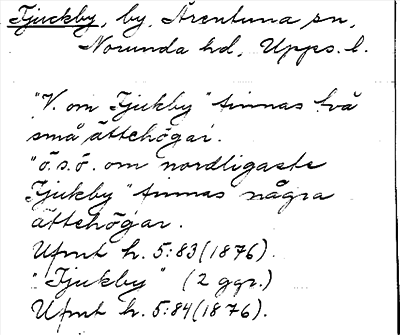 Tjuckby, by, Ärentuna sn,
Norunda hd, Upps. l.
"V. om Tjukby" finnas två
små ättehögar.
"ö.s.ö. om nordligaste
Tjukby" finnas några
ättehögar.
Ufmt h. 5:83 (1876).
"Tjukby" (2 ggr.)
Ufmt h. 5:84 (1876).